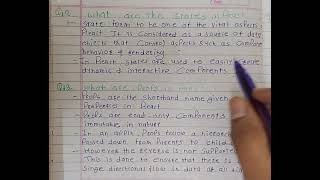 Q12 What are the states in React
- State form to be one of the vital aspects
React. It is considered as a source of data
objects that control aspects such as component
behavior & rendering
- In React states are used to easily create
dynamic & interactive components
Q13 What are
- Props are the shorthand name given
Properties in React
- Props are read-only components
immutable in nature
- In an appli, Props follow a hierarchy
Passed down from Parents to child
- However the reverse is not supported
This is done to ensure that there is
single directional flow of data at all